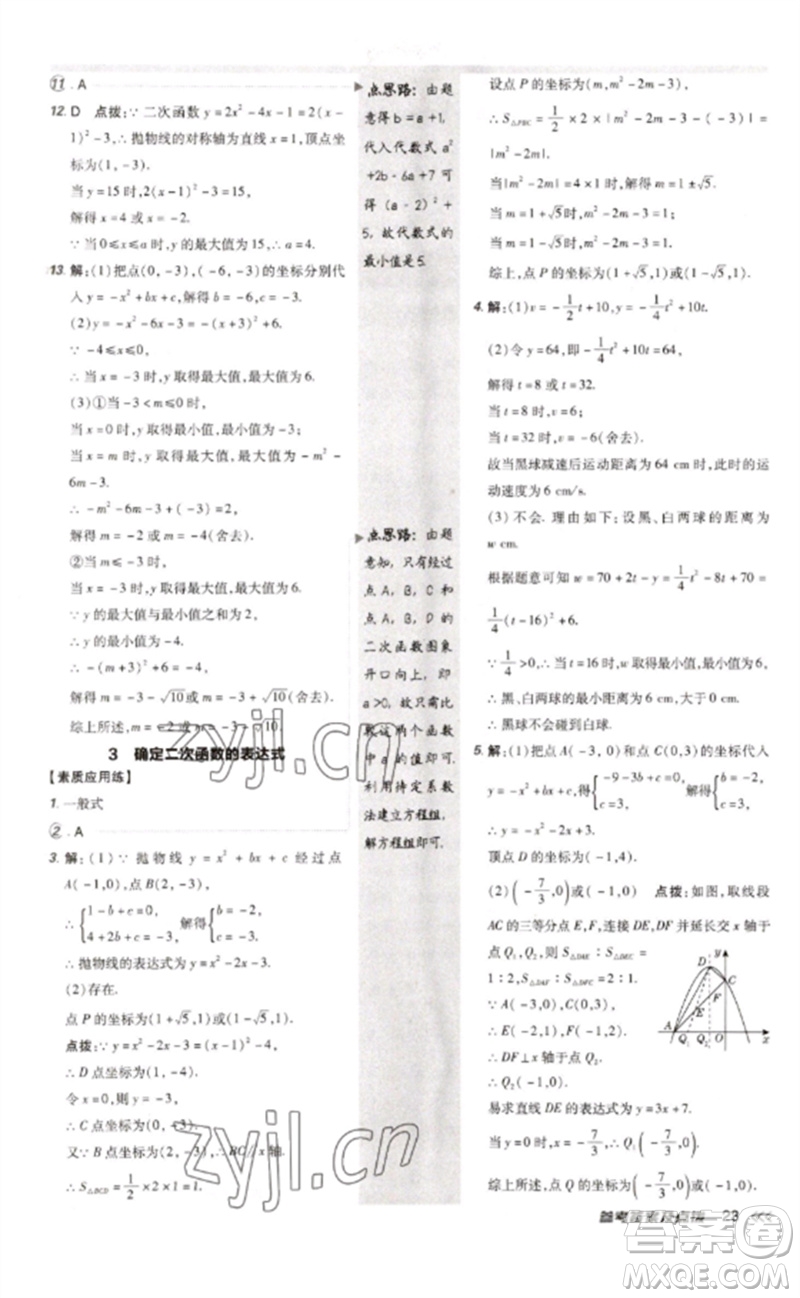 11. A
12. D 点拨:∵二次函数 y=2x²-4x-1=2(x-
1)²-3,∴抛物线的对称轴为直线 x=1,顶点坐
标为(1,-3).
当 y=15时,2(x-1)²-3=15,
解得 x=4或 x=-2.
∵当0≤x≤a时,y的最大值为15,∴a=4.
13. 解:(1)把点(0,-3),(-6,-3)的坐标分别代
入 y=-x²+bx+c,解得
(2)y=-x²-6x-3=-(x+3)²+6.
∵-4≤x≤0,
∴当 x=-3时,y取得最大值,最大值为6.
(3)①当-3<m≤0时,
当 x=0时,y取得最小值,最小值为-3;
当 x=m时,y取得最大值,最大值为-m²-
6m-3.
∴-m²-6m-3+(-3)=2.
解得 m=-2或 m=-4(舍去).
②当 m≤-3时,
当 x=-3时,y取得最大值,最大值为6.
∵y的最大值与最小值之和为2,
∴y的最小值为-4.
∴-(m+3)²+6=-4.
解得 m=-3-√10或 m=-3+√10(舍去).
综上所述,m=-2或 m=-3-√10.
3 确定二次函数的表达式
【素质应用练】
1. 一般式
2. A
3. 解:(1)∵抛物线 y=x²+bx+c 经过点
A(-1,0),点B(2,-3),
∴{1-b+c=0, 4+2b+c=-3, 解得{b=-2, c=-3.
∴抛物线的表达式为 y=x²-2x-3.
(2)存在.
点 P 的坐标为(1+√5,1)或(1-√5,1).
点拨:∵y=x²-2x-3=(x-1)²-4,
∴D点坐标为(1,-4).
令 x=0,则 y=x²-2x-3=-3,
∴C点坐标为(0,-3).
又∵B点坐标为(2,-3),∴BC∥x轴.
∴S△BCD=1/2×2×1=1.
点思路:由题
意得b=a+1,
代入代数式a²
+2b-6a+7可
得(a-2)²+
5,故代数式的
最小值是5.
点思路:由题
意知,只有经过
点A,B,C和
点A,B,D的
二次函数图象
开口向上,即
a>0,故只需比
较这两个函数
中a的值即可.
利用待定系数
法建立方程组,
解方程组即可.
设点 P 的坐标为(m,m²-2m-3),
∴S△PBC=1/2×2×|m²-2m-3-(-3)|=
|m²-2m|.
当|m²-2m|=4×1时,解得 m=1±√5.
当 m=1+√5时,m²-2m-3=1,
当 m=1-√5时,m²-2m-3=1,
综上,点 P 的坐标为(1+√5,1)或(1-√5,1).
4. 解:(1)v=-1/2t+10,y=-1/4t²+10t.
(2)令 y=64,即-1/4t²+10t=64,
解得 t=8或 t=32,
当 t=8时,v=6;
当 t=32时,v=-6(舍去).
故当黑球减速后运动距离为 64 cm时,此时的运
动速度为6 cm/s.
(3)不会.理由如下:设黑、白两球的距离为
w cm.
根据题意可知 w=70+2t-y=1/4t²-8t+70=
1/4(t-16)²+6.
∵1/4>0,∴当 t=16时,w取得最小值,最小值为6,
∴黑、白两球的最小距离为6 cm,大于0,
∴黑球不会碰到白球.
5. 解:(1)把点A(-3,0)和点C(0,3)的坐标代入
y=-x²+bx+c,得{-9-3b+c=0, c=3, 解得{b=-2, c=3.
∴y=-x²-2x+3=-(x+1)²+4.
顶点 D 的坐标为(-1,4).
(2)(-7/3,0)或(-1,0) 点拨:如图,取线段
AC的三等分点E,F,连接DE,DF并延长交 x 轴于
点Q₁,Q₂,则 S△DAE∶S△DEC=
1∶2,S△DAF∶S△DFC=2∶1.
∵A(-3,0),C(0,3),
∴E(-2,1),F(-1,2).
∴DF⊥x轴于点Q₂.
∴Q₂(-1,0).
易求直线 DE的表达式为 y=3x+7.
当 y=0时,x=-7/3,∴Q₁(-7/3,0).
综上所述,点 Q 的坐标为(-7/3,0)或(-1,0).
y
D
C
F
E
A
Q₁ Q₂
O
x
参考答案及点拨 23
zyjl.cn
zyjl.cn
答案圈
MXQE.COM